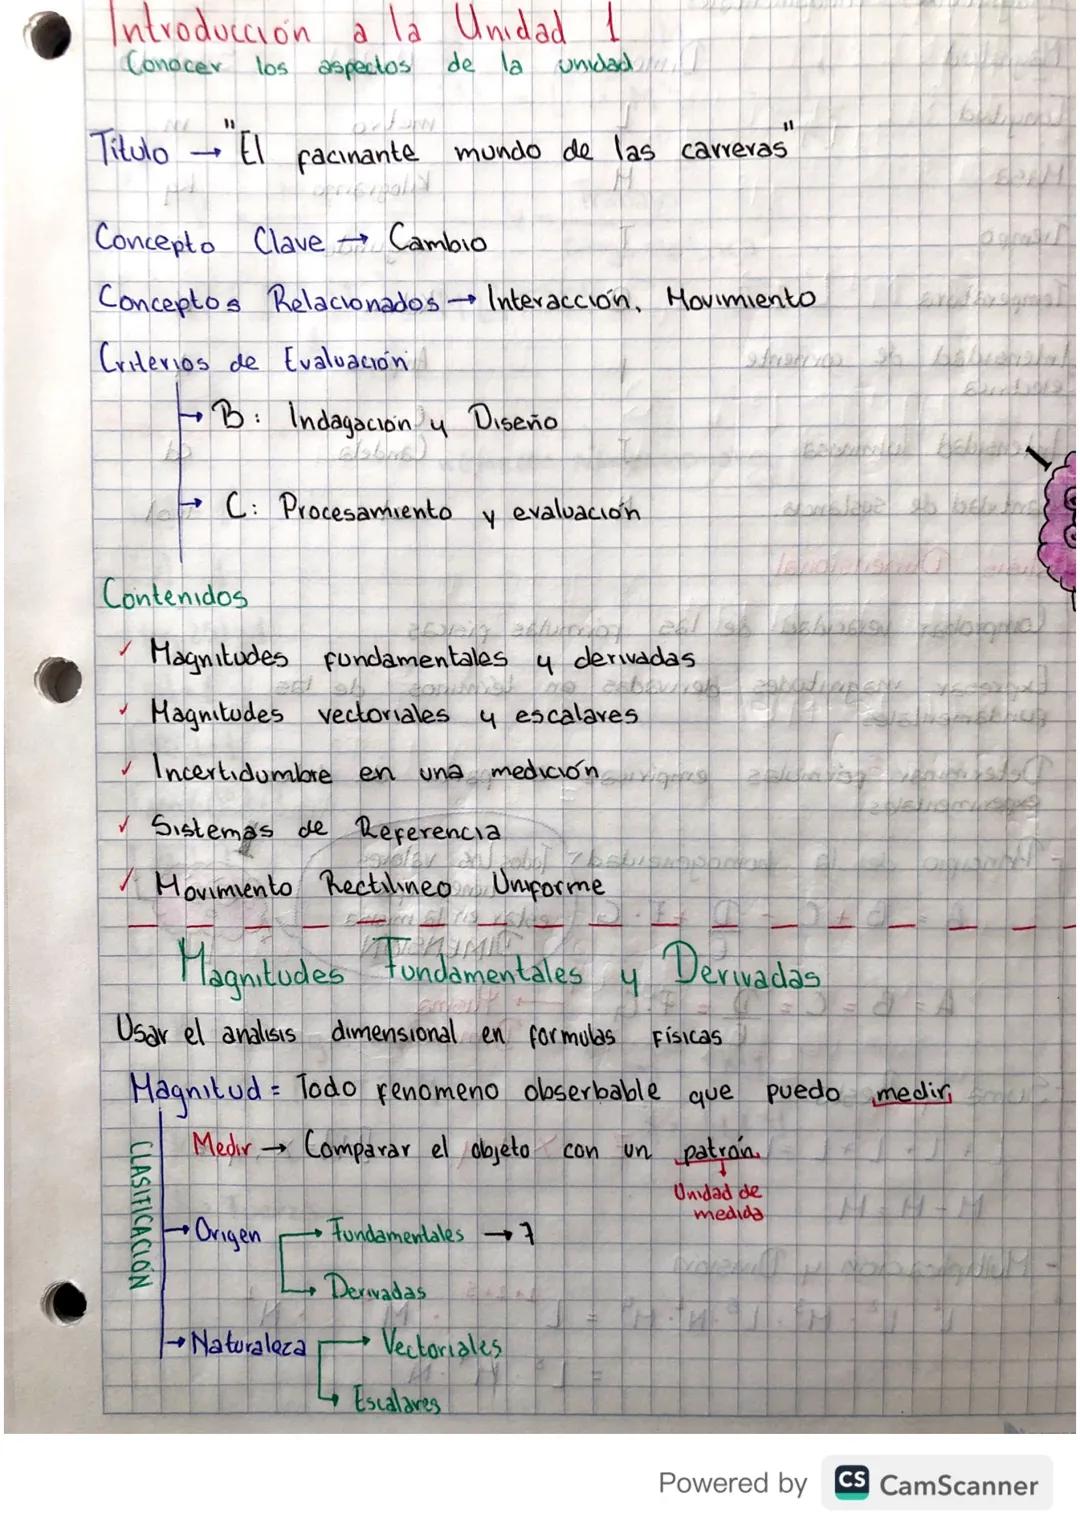 Introducción a la Unidad 1
Conocer los aspectos de la unidad
Titulo → "El facinante mundo de las carreras"
Concepto Clave → Cambio
Conceptos Relacionados → Interacción, Movimiento
Criterios de Evaluación
→ B: Indagación y Diseño
→ C: Procesamiento y evaluación
Contenidos
✓ Magnitudes fundamentales y derivadas
✓ Magnitudes vectoriales y escalares
✓ Incertidumbre en una medición
✓ Sistemas de Referencia
✓ Movimiento Rectilineo Uniforme
Magnitudes Fundamentales y Derivadas
Usar el analisis dimensional en formulas Físicas
Magnitud = Todo fenomeno obserbable que puedo medir,
Medir → Comparar el objeto con un patrón.
Unidad de
medida
CLASIFICACIÓN
→ Origen → Fundamentales → 7
→ Derivadas
→ Naturaleza → Vectoriales
→ Escalares
Powered by CS CamScanner